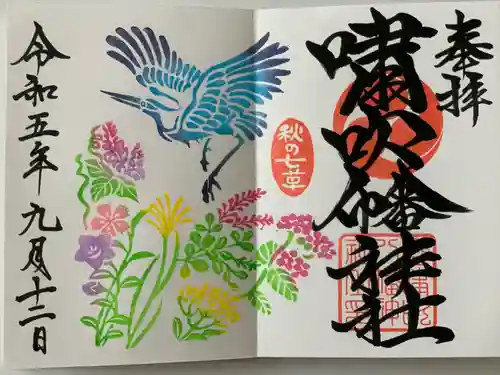 奉拝
嘯吹八幡神社
秋の七草
令和五年九月十二日